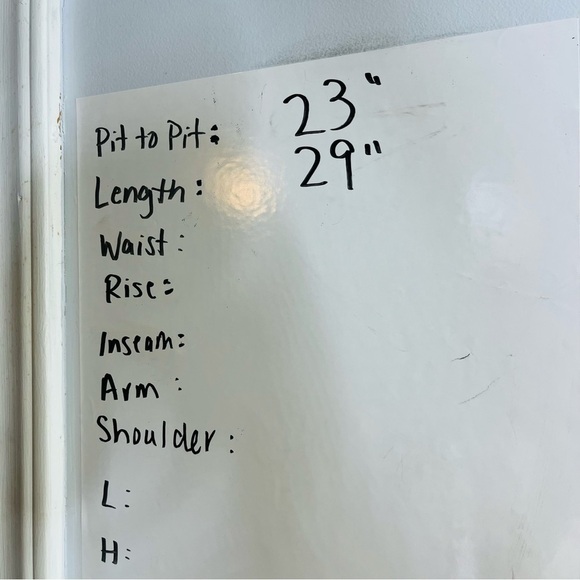 Pit to Pit: 23"
Length: 29"
Waist:
Rise:
Inseam:
Arm:
Shoulder:
L:
H: